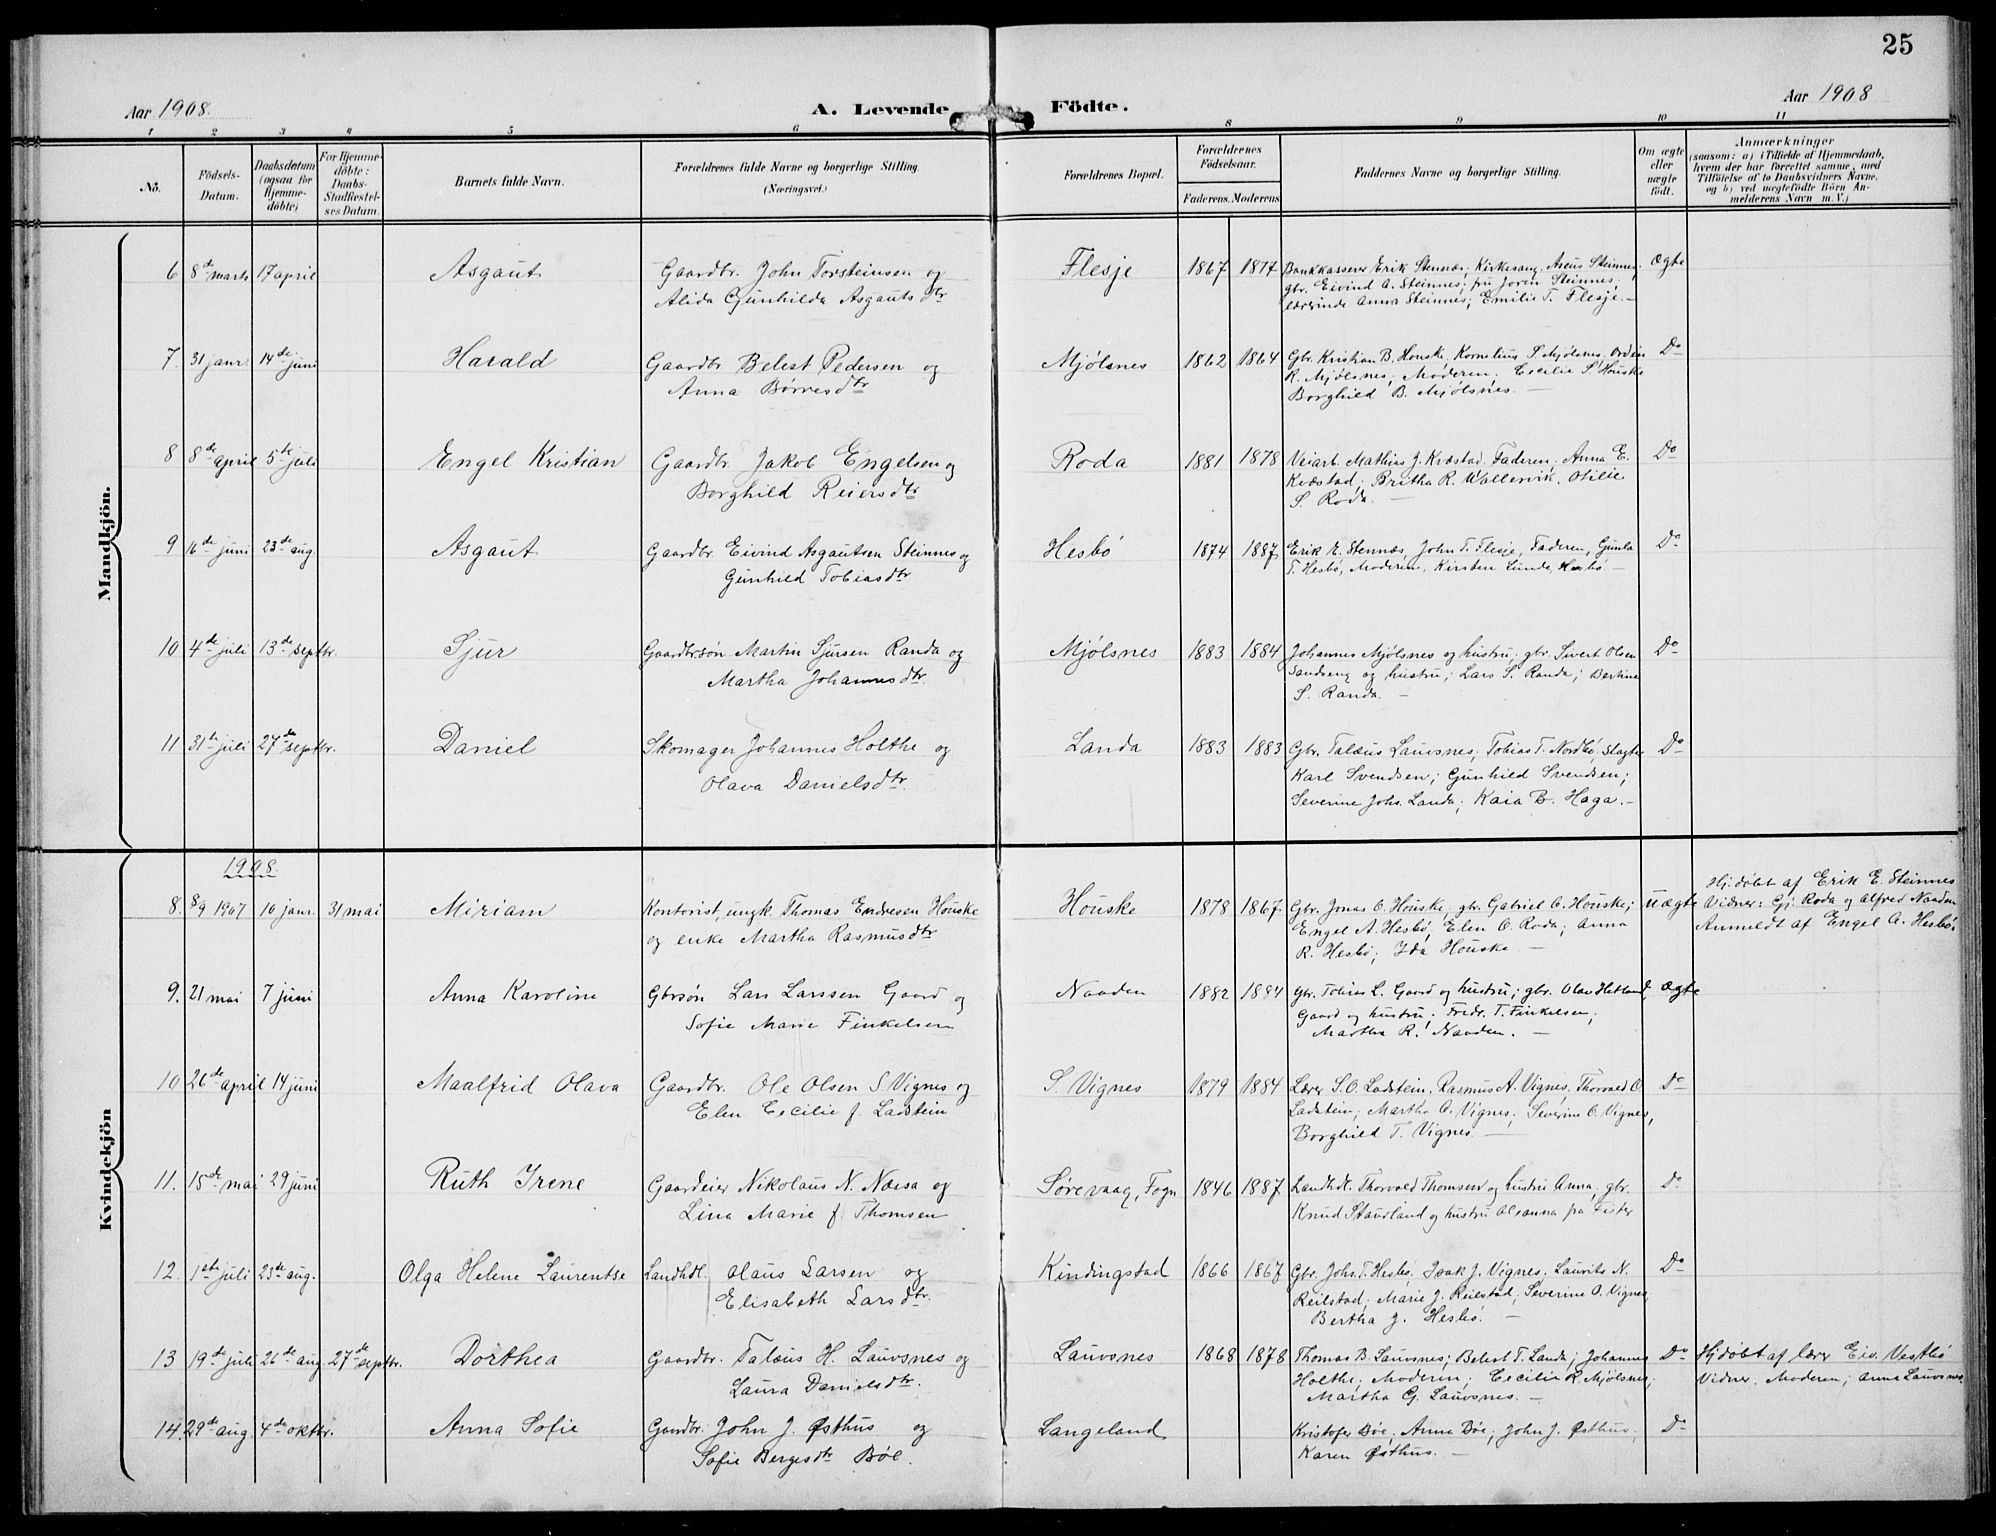 25
Aar 1908.
A. Levende Födte.
Aar 1908
1 2 3 4 5 6 8 9 10 11
No.
Födsels-Datum.
Daabsdatum (ogsaa for Hjemmedöbte)
For Hjemmedöbte: Daabs-Stadfæstelses Datum.
Barnets fulde Navn.
Forældrenes fulde Navne og borgerlige Stilling. (Næringsvei.)
Forældrenes Bopæl.
Forældrenes Födselsaar.
Faderens. Moderens
Faddernes Navne og borgerlige Stilling.
Om ægte eller uægte födt.
Anmærkninger
(saasom: a) i Tilfælde af Hjemmedaab, hvem der har forrettet samme, med Tilföielse af to Daabsvidners Navne, og b) ved uægtefödte Börn Anmelderens Navn m. V.)
Mandkjön.
6 8de marts 17 april Asgaut Gaardbr. John Torsteinsen og Flesje 1867 1877 Bankkasserer Erik Stennæs; Kirkesang. Aseus Steinnes, Ægte
Alida Gunhilda Asgautsdtr gbr. Eivind A. Steinnes; fru Joren Steinnes,
lærerinde Anna Steinnes; Emilie T. Flesje. —
7. 31 janr. 14de juni Harald Gaardbr Belest Pedersen og Mjølsnes 1862 1864 Gbr. Kristian B. Houske, Kornelius S. Mjølsnes, Ordin Do
Anna Børresdtr R. Mjølsnes; Moderen, Cecilie S. Houske
Borghild B. Mjølsnes. —
8 8de april 5te juli Engel Kristian Gaardbr. Jakob Engelsen og Roda 1881 1878 Veiarb. Mathias J. Kvæstad, Faderen, Anna E. Do
Borghild Reiersdtr Kvæstad; Britha R. Wallervik, Otilie
S. Roda. —
9 16de juni 23de aug. Asgaut Gaardbr. Eivind Asgautsen Steinnes og Hesbø 1874 1887 Erik E. Stennæs, John T. Flesje, Faderen, Gunla Do
Gunhild Tobiasdtr T. Hesbø, Moderen, Kirsten Lunde, Hesbø —
10 4de juli 13de septbr. Sjur Gaardbrsøn Martin Sjursen Randa og Mjølsnes 1883 1884 Johannes Mjølsnes og hustru; gbr. Sivert Olsen Do
Martha Johannesdtr. Sandseng og hustru; Lars S. Randa; Bertine
S. Randa. —
11 31te juli 27de septbr. Daniel Skomager Johannes Holthe og Landa 1883 1883 Gbr. Talæus Lauvsnes; Tobias T. Nordbø, Slagter Do
Olava Danielsdtr. Karl Svendsen; Gunhild Svendsen;
Severine Johs. Landa; Kaia B. Haga. —
Kvindekjön
1908.
8. 8/9 1907 10 janr. 31 mai Miriam Kontorist, ungk. Thomas Endresen Houske Houske 1878 1867 Gbr. Jonas O. Houske, gbr. Gabriel O. Houske; uægte Hj. døbt af Erik E. Steinnes
og enke Martha Rasmusdtr Engel A. Hesbø, Elen O. Roda; Anna Vidner: Gj. Roda og Alfred Naaden
R. Hesbø; Ida Houske. — Anmeldt af Engel A. Hesbø.
9. 21 mai 7 juni Anna Karoline Gbrsøn Lars Larssen Gaard og Naaden 1882 1884 gbr. Tobias L. Gaard og hustru; gbr. Olav Hetland, Ægte
Sofie Marie Finkelsen Gaard og hustru; Fredr. T. Finkelsen;
Martha R. Naaden. —
10 26de april 14 juni Maalfrid Olava Gaardbr. Ole Olsen S. Vignes og S. Vignes 1879 1884 Lærer S. O. Ladstein, Rasmus A. Vignes, Thorvald O. Do
Elen Cecilie f. Ladstein Ladstein; Martha O. Vignes, Severine O. Vignes,
Borghild T. Vignes. —
11. 15de mai 29 juni Ruth Irene Gaardeier Nikolaus N. Næssa og Sørevaag, Fogn 1846 1887 Landhdl. Thorvald Thomsen og hustru Anna; gbr. Do
Lina Marie f. Thomsen Knud Staurland og hustru Olsanna fra Fister
12. 1ste juli 23de aug. Olga Helene Laurentse Landhdl. Olaus Larsen og Kindingstad 1866 1867 Gbr. Johs. T. Hesbø, Isak J. Vignes, Laurits N. Do
Elisabeth Larsdtr. Reilstad; Marie J. Reilstad; Severine O. Vignes,
Bertha J. Hesbø. —
13 19de juli 26de aug. 27de septbr. Dorthea Gaardbr. Talæus H. Lauvsnes og Lauvsnes 1868 1878 Thomas B. Lauvsnes; Belest T. Landa; Johannes Do Hjdøbt af lærer Eiv. Vestbø
Laura Danielsdtr. Holthe; Moderen; Cecilie R. Mjølsnes; Vidner: Moderen; Anna Lauvsnes
Martha G. Lauvsnes. —
14. 29de aug. 4de oktbr. Anna Sofie Gaardbr. John J. Østhus og Langeland Kristofer Bøe, Anna Bøe; John J. Østhus, Do
Sofie Bergesdtr Bøe. Karen Østhus. —